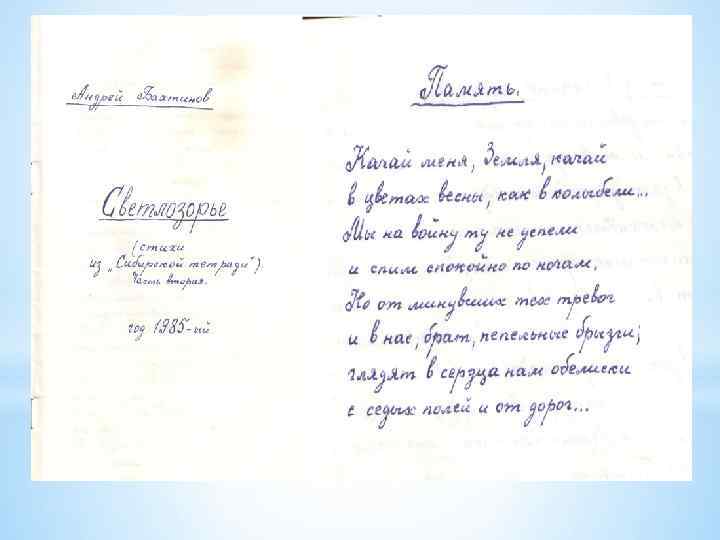 Андрей Бахтинов
Светлозорье
(стихи
из „Сибирской тетради")
Часть вторая.
год 1985-ый
Память.
Качай меня, Земля, качай
в цветах весны, как в колыбели...
Мы на войну ту не успели
и спим спокойно по ночам.
Но от минувших тех тревог
и в нас, брат, пепельные брызги;
глядят в сердца нам обелиски
с седых полей и от дорог...